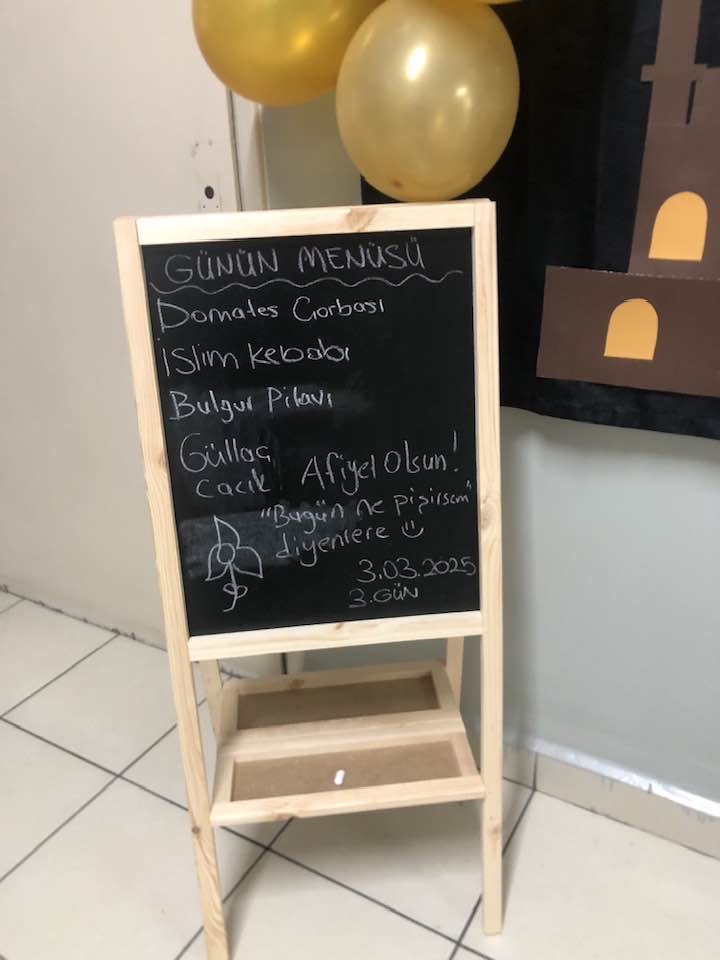 GÜNÜN MENÜSÜ
Domates Çorbası
İslim Kebabı
Bulgur Pilavı
Güllaç
Cacık Afiyet Olsun!
"Bugün ne pişirsem"
diyenlere
3.03.2025
3.GÜN